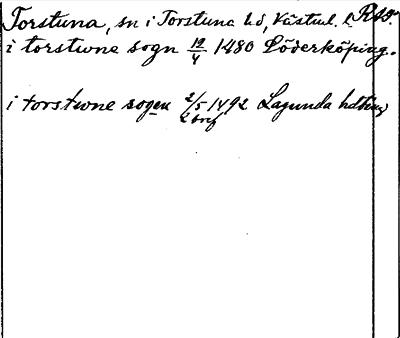 Torstuna, sn i Torstuna hd, Västml. l. RA5.
i torstwne sogn 12/4 1480 Söderköping.
i torstwne sogen 2/5 1492 Lagunda hdting
2 bref